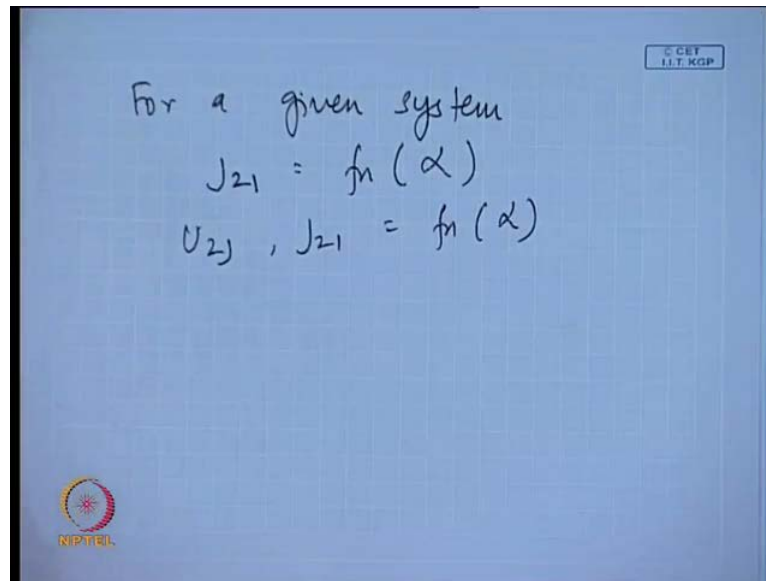 © CET
I.I.T. KGP
For a given system
J21 = fn (α)
U2J , J21 = fn (α)
NPTEL